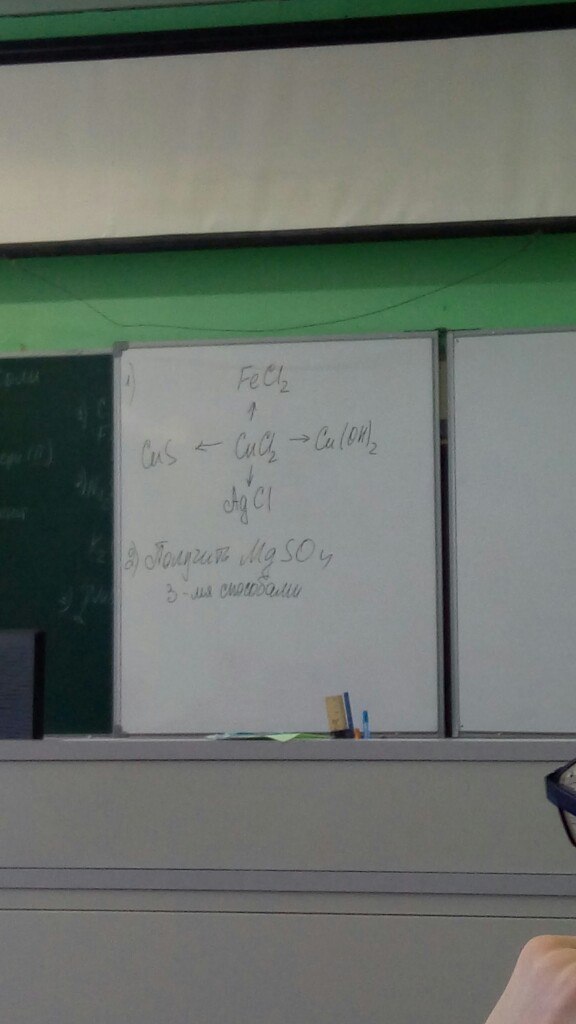 1)
FeCl2
↑
CuS ← CuCl2 → Cu(OH)2
↓
AgCl
2) Получить MgSO4
3-мя способами